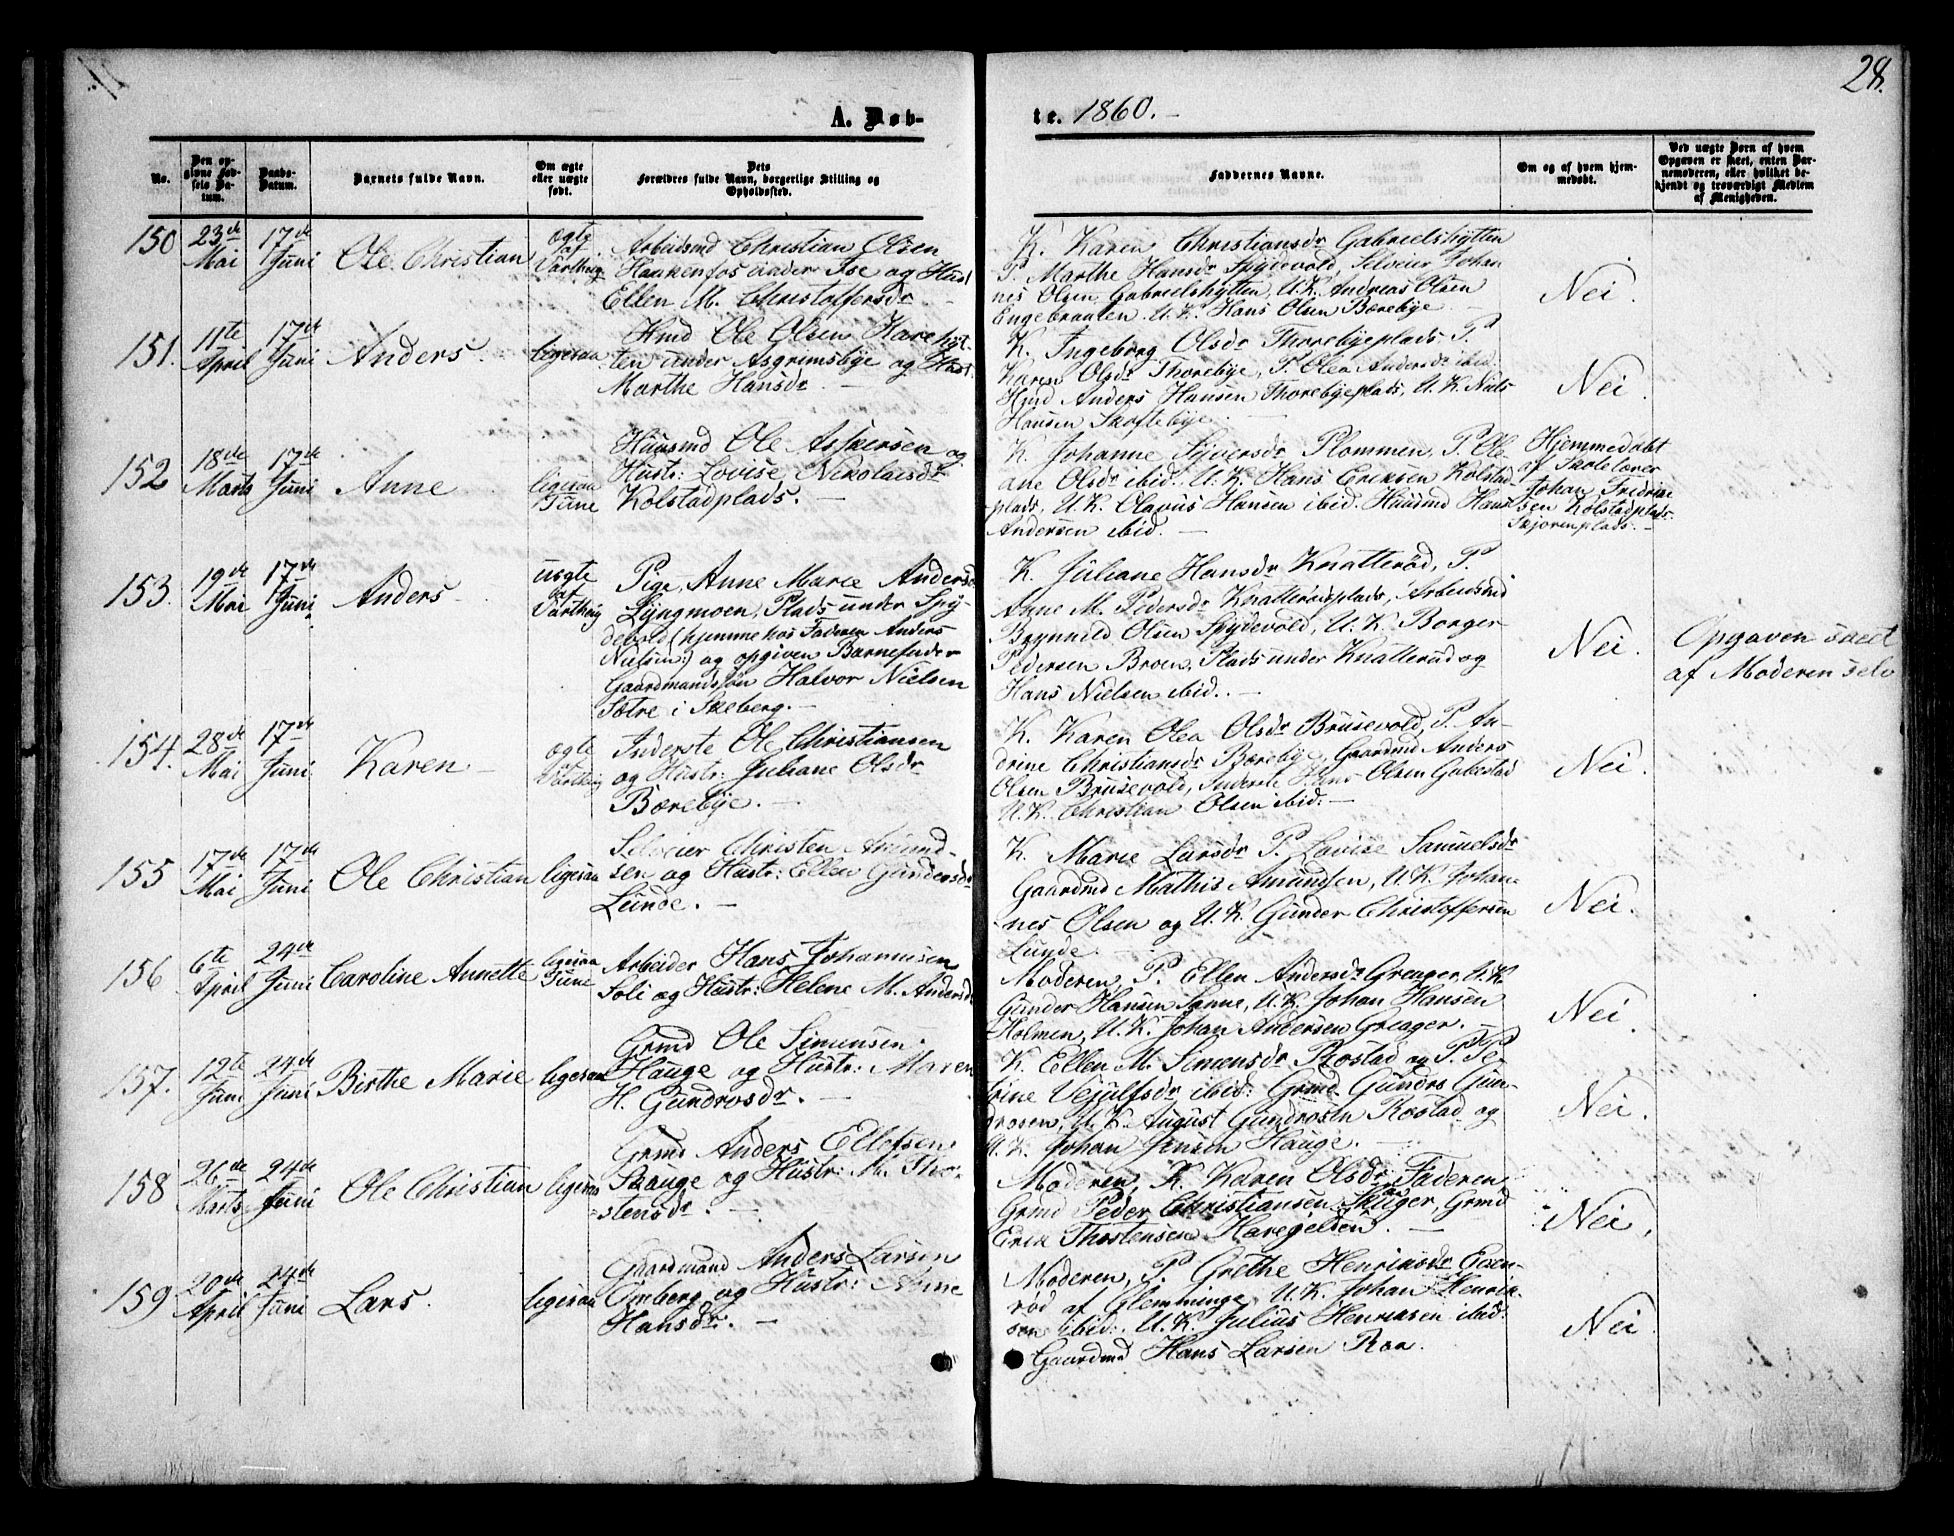 28.
A. Døb-
te. 1860. -
No.
Den op-
givne Fød-
sels Da-
tum.
Daabs-
Datum.
Barnets fulde Navn.
Om ægte
eller uægte
født.
Dets
Forældres fulde Navn, borgerlige Stilling og
Opholdssted.
Faddernes Navne.
Om og af hvem hjem-
medøbt.
Ved uægte Børn af hvem
Opgaven er skeet, enten Bar-
nemoderen, eller hvilket be-
kjendt og troværdigt Medlem
af Menigheden.
150 23de Mai 17de Juni Ole Christian ægte af Varteig
Arbeidsmd Christian Olsen
Haukenfos under Ise og Hust
Ellen M. Christoffersdr
K. Karen Christiansdr Gabrielshytten
P. Marthe Hansdr Spydevold, Selveier Johan
nes Olsen Gabrielshytten, U.K. Andreas Olsen
Engebraaten. U.K. Hans Olsen Bærebye. -
Nei.
151. 11te April 17de Juni Anders. ligesaa
Hmd Ole Olsen Harehyt-
ten under Asgrimsbye og Hust
Marthe Hansdr. -
K. Ingeborg Olsdr Thorebyeplads. P.
Karen Olsdr Thorebye, P. Olea Andersdr ibid.
Hmd Anders Hansen Thorebyeplads, U.K. Niels
Hansen Skoftebye.
Nei.
152 18de Marts 17de Juni Anne ligesaa Tune
Huusmd Ole Askersen og
Hustr: Lovise Nikolaisdr
Kolstadplads. -
K. Johanne Syversdr Plommen, P. Ole
ane Olsdr ibid. U.K. Hans Eriksen Kolstad
plads, U.K. Olavus Hansen ibid. Huusmd Hans
Andersen ibid. -
Hjemmedøbt
af Skolelærer
Johan Fredrik
sen Kolstadplads.
Skjørenplads. -
153. 19de Mai 17de Juni Anders - uægte af Varteig
Pige, Anne Marie Andersd
Lyngmoen, Plads under Spy-
devold (hjemme hos Faderen Anders
Nielsen:) og opgiven Barnefader
Gaardmandssøn Halvor Nielsen
Sætre i Skeberg. -
K. Juliane Hansdr Knatterød, P.
Anne M. Pedersdr Knatterødplads, Arbeidsmd
Brynnild Olsen Spydevold, U.K. Borger
Pedersen Broen, Plads under Knatterød og
Hans Nielsen ibid. -
Nei.
Opgaven skeet
af Moderen selv
154. 28de Mai 17de Juni Karen - ægte af Varteig
Inderste Ole Christiansen
og Hustr: Juliane Olsdr
Bærebye. -
K. Karen Olea Olsdr Brusevold, P. An-
drine Christiansdr Bærebye, Gaardmd Anders
Olsen Brusevold, Inderste Hans Olsen Gabestad
U.K. Christian Olsen ibid. -
Nei.
155 17de Mai 17de Juni Ole Christian ligesaa
Selveier Christen Amund-
sen og Hustr: Ellen Gundersdr
Lunde. -
K. Marie Larsdr P. Lovise Samuelsdr
Gaardmd Mathis Amundsen, U.K. Johan-
nes Olsen og U.K. Gunder Christoffersen
Lunde.
Nei.
156 6te April 24de Juni Caroline Annette ligesaa Tune
Arbeider Hans Johannesen
Soli og Hustr: Helene M. Andersd
Moderen, P. Ellen Andersdr Greager, U.K.
Gunder Hansen Sanne, U.K. Johan Hansen
Holmen, U.K. Johan Andersen Greager. -
Nei.
157. 12te Juni 24de Juni Birthe Marie ligesaa
Grmd Ole Simensen
Hauge og Hustr: Maren
H. Gundrosdr. -
K. Ellen M. Simensdr Rostad og P. Pe-
trine Vejulfsdr ibid: Grmd Gundro Gun-
drosen, U.K. August Gundrosen Rostad og
U.K. Johan Jensen Hauge. -
Nei.
158 26de Marts 24de Juni Ole Christian ligesaa
Grmd Anders Ellefsen
Skauge og Hustr: M. Tho-
stensdr. -
Moderen, K. Karen Olsdr Faderen,
Grmd Peder Christiansen, Grmd
Erik Thostensen Haregelden. -
Nei.
159 20de April 24de Juni Lars. ligesaa
Gaardmand Anders Larsen
Omberg og Hustr: Anne
Hansdr. -
Moderen, P. Grethe Henriksdr Even-
rød af Glemminge, U.K. Johan Henrik-
sen ibid: U.K. Julius Henriksen ibid:
Gaardmd Hans Larsen Roa.
Nei.